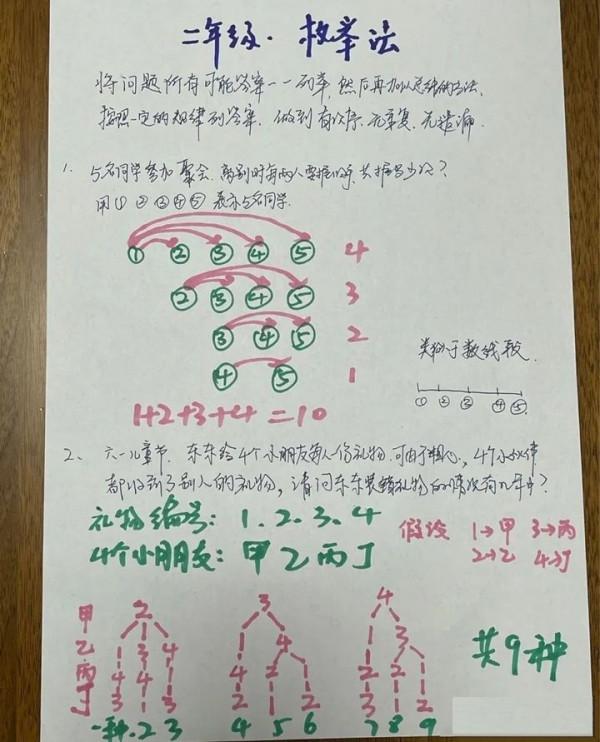 二年级·枚举法
将问题所有可能答案一一列举,然后再加以总结的方法.
按照一定的规律列答案,做到有次序,无重复,无遗漏.
1. 5名同学参加聚会,离别时每两人要握次手,共握多少次?
用①②③④⑤表示5名同学.
① ② ③ ④ ⑤ 4
② ③ ④ ⑤ 3
③ ④ ⑤ 2
④ ⑤ 1
类似于数线段.
① ② ③ ④ ⑤
1+2+3+4=10
2、六一儿童节,东东给4个小朋友每人一份礼物,可由于粗心,4个小伙伴
都收到了别人的礼物,请问东东装错礼物的情况有几种?
礼物编号:1.2.3.4
4个小朋友:甲乙丙丁
假设 1→甲 3→丙
2→乙 4→丁
甲 2 3 4
乙 1 3 4 1 4 1 3
丙 4 4 1 4 1 2 2 1 1
丁 3 1 3 2 2 1 3 2 2
一种.2 3 4 5 6 7 8 9
共9种